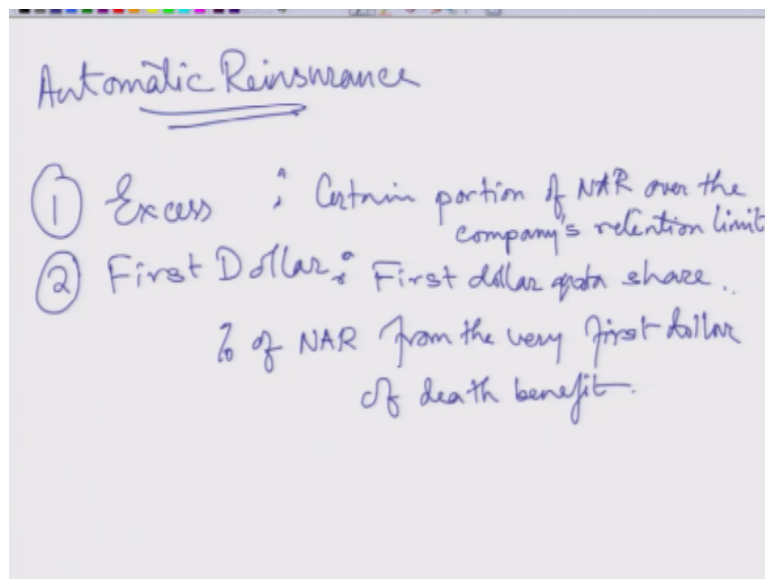 Automatic Reinsurance
1 Excess : Certain portion of NAR over the
company's retention limit
2 First Dollar : First dollar quota share..
% of NAR from the very first dollar
of death benefit.